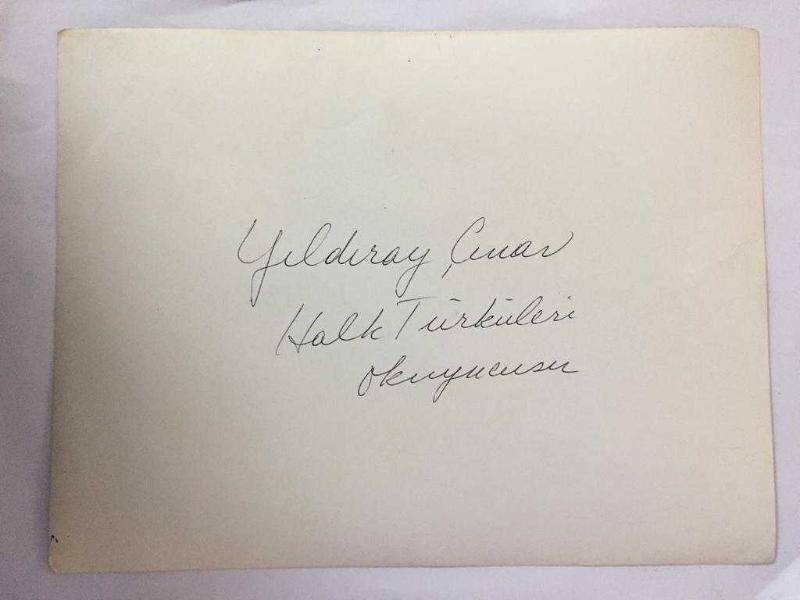 Yıldıray Çınar
Halk Türküleri
Okuyucusu